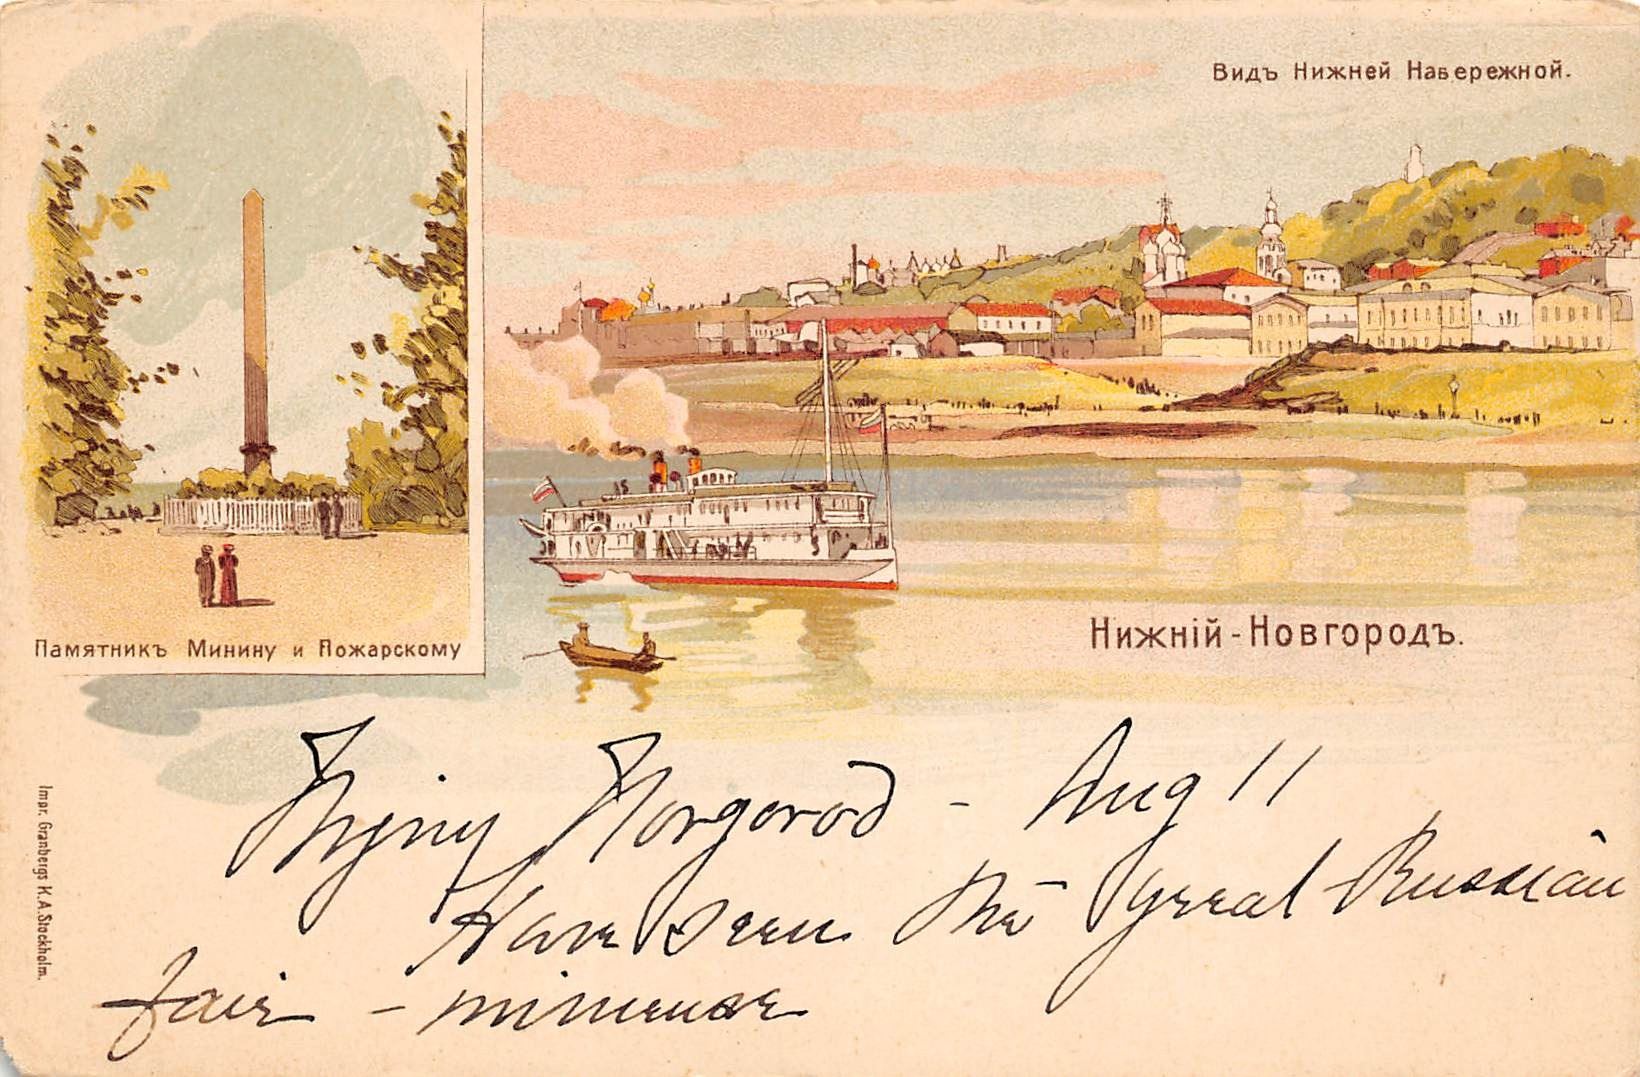 Видъ Нижней Набережной.
Памятникъ Минину и Пожарскому
Нижнiй-Новгородъ.
Impr. Granbergs K.A. Stockholm.
Nijny Novgorod - Aug 11
Have seen the great Russian
fair - immense